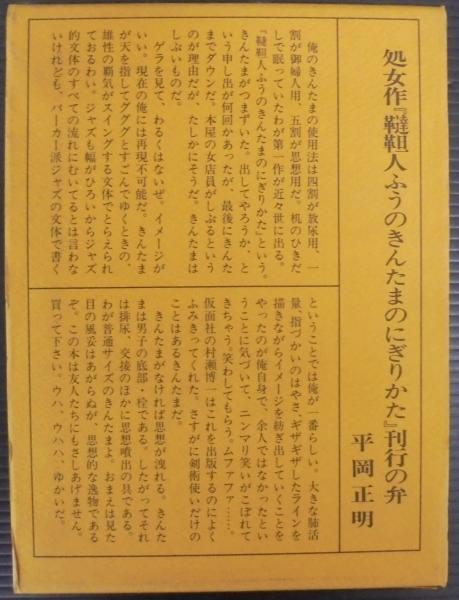 処女作『韃靼人ふうのきんたまのにぎりかた』刊行の弁
平岡正明
俺のきんたまの使用法は四割が放尿用、一
割が御婦人用、五割が思想用だ。机のひきだ
しで眠っていたわが第一作が近々世に出る。
『韃靼人ふうのきんたまのにぎりかた』という。
きんたまがつまずいた。出してやろうか、と
いう申し出が何回かあったが、最後にきんた
までダウンだ。本屋の女店員がしぶるという
のが理由だが、たしかにそうだ。きんたまは
しぶいものだ。
ゲラを見て、わるくはないぜ。イメージが
いい。現在の俺には再現不可能だ。きんたま
が天を指してググググとすごんでゆくときの、
雄性の覇気がスイングする文体でとらえられ
ておるわい。ジャズも幅がひろいからジャズ
的文体のすべての流れにむいてるとは言わな
いけれども、パーカー派ジャズの文体で書く
ということでは俺が一番らしい。大きな肺活
量、指づかいのはやさ、ギザギザしたラインを
描きながらイメージを紡ぎ出していくことを
やったのが俺自身で、余人ではなかったとい
うことに気づいて、ニンマリ笑いがこぼれて
きちゃう。笑わしてもらう。ムファファ……。
仮面社の村瀬博一はこれを出版するのによく
ふみきってくれた。さすがに剣術使いだけの
ことはあるきんたまだ。
きんたまがなければ思想が洩れる。きんた
まは男子の底部・栓である。したがってそれ
は排尿、交接のほかに思想噴出の具である。
わが普通サイズのきんたまよ。おまえは見た
目の風采はあがらぬが、思想的な逸物である
ぞ。この本は友人たちにもさしあげません。
買って下さい。ウハ、ウハハ、ゆかいだ。